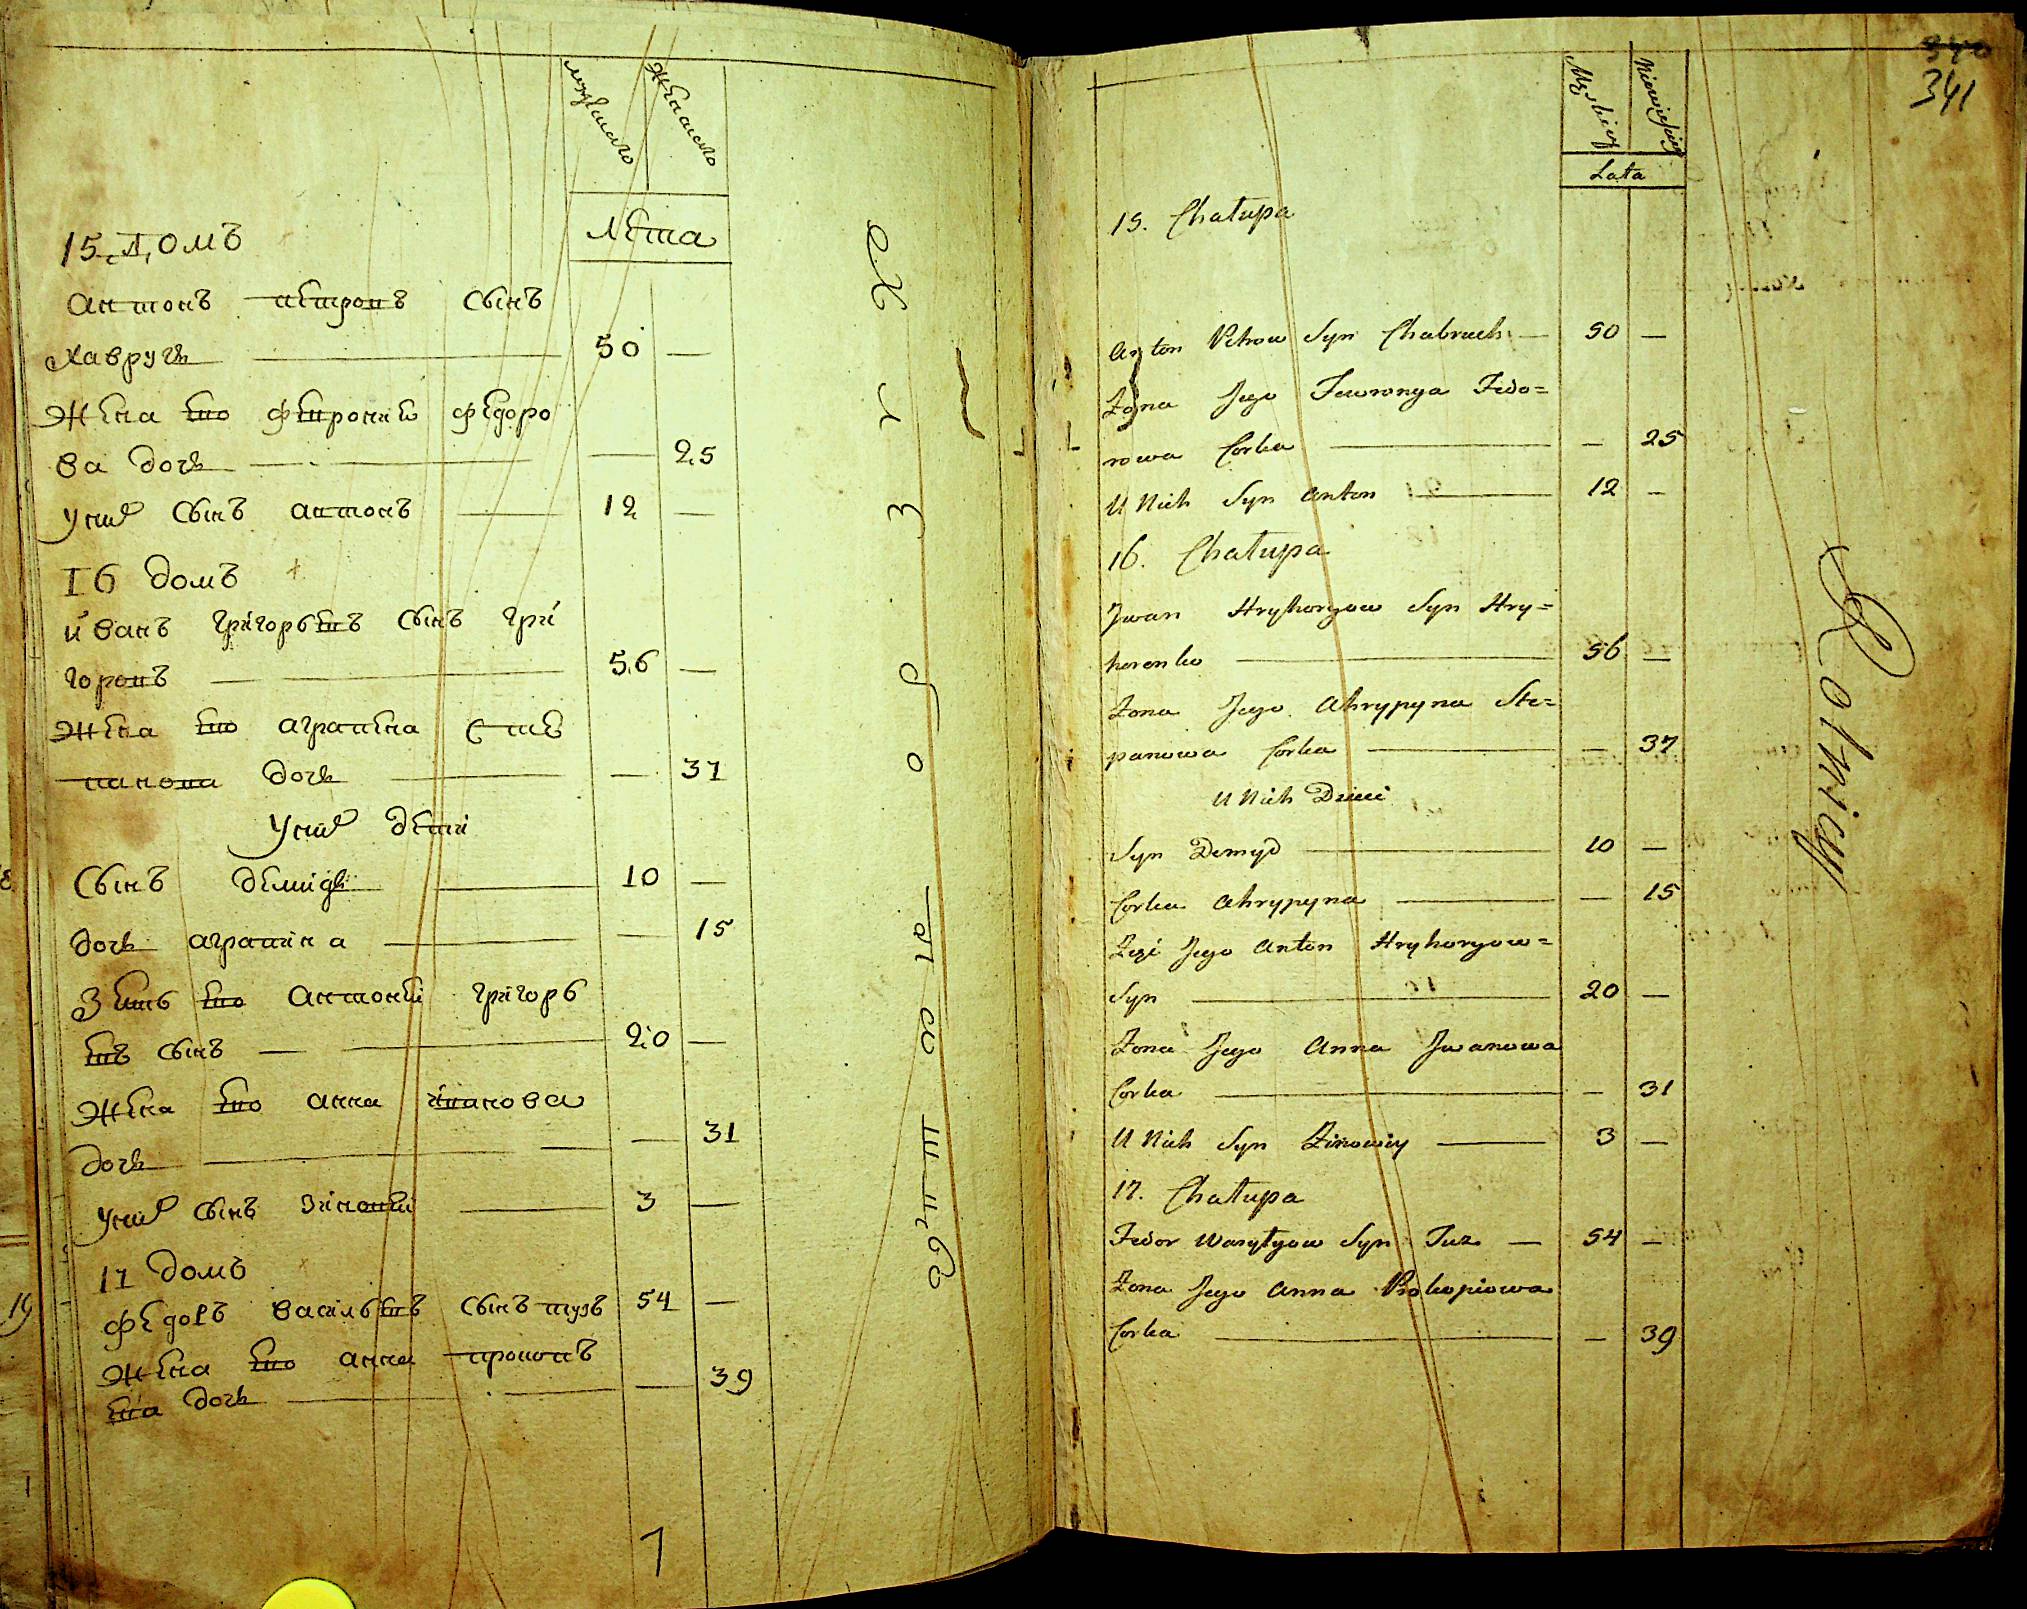 мужескаго
женскаго
Лета
15 Домъ
антонъ петровъ сынъ
Хавручь 50 —
Жена его февронию федоро
ва дочь — 25
у них сынъ антонъ 12 —
16 домъ
иванъ григорьевъ сынъ гри
горовъ 56 —
Жена его аграпена Сте
панова дочь — 37
у них дети
Сынъ демидъ 10 —
дочь аграпина — 15
Зеть его антоний григорь
евъ сынъ 20 —
Жена его анна иванова
дочь — 31
у них сынъ зиновий 3 —
17 домъ
федоръ васильевъ сынъ тузъ 54 —
Жена его анна прокопь
ева дочь — 39
7
340
341
Męzkiey
Niewieściey
Lata
15. Chałupa
Anton Petrow Syn Chabruch — 50 —
Żona Jego Fewronya Fedo=
rowa Corka — 25
U Nich Syn Anton 12 —
16. Chałupa
Jwan Hryhoryow Syn Hry=
horenko 56 —
Żona Jego Ahrypyna Ste=
panowa Corka — 37
U Nich Dzieci
Syn Demyd 10 —
Corka Ahrypyna — 15
Zęć Jego Anton Hryhoryow=
Syn 20 —
Żona Jego Anna Jwanowa
Corka — 31
U Nich Syn Zinowiy 3 —
17. Chałupa
Fedor Wasylyow Syn Tuz — 54 —
Żona Jego Anna Prokopiowa
Corka — 39
Rolnicy